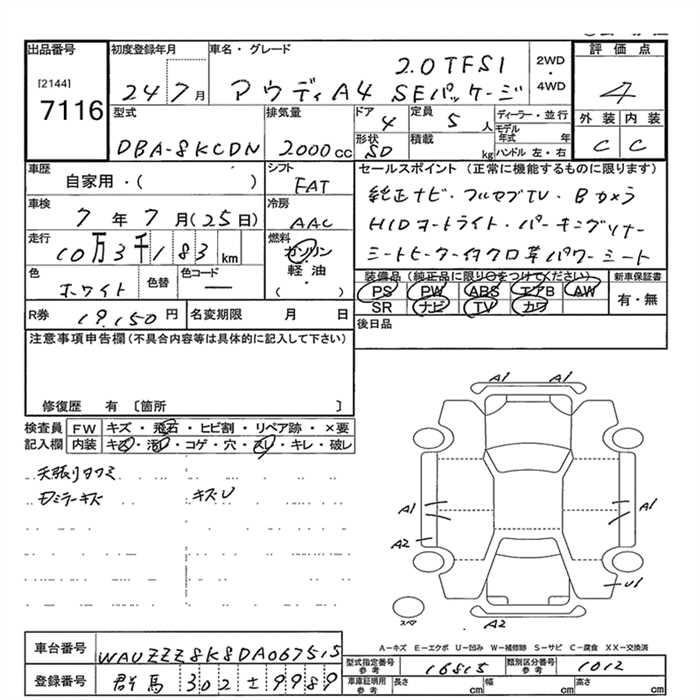 出品番号 初度登録年月 車名・グレード 2.0TFSI 2WD・4WD 評価点
[2144]
7116 24年7月 アウディA4 SEパッケージ 4
型式 排気量 ドア 4 定員 5人 ディーラー・並行 外装 内装
DBA-8KCDN 2000cc 形状 SD 積載 kg モデル年式 年 ハンドル 左・右 C C
車歴 シフト セールスポイント (正常に機能するものに限ります)
自家用・( ) FAT 純正ナビ・フルセグTV・Bカメラ
車検 冷房
7年7月(25日) AAC HIDヨートライト・パーキングソナー
走行 燃料
10万3千183km ガソリン シートヒーター付クロ革パワーシート
色 色替 色コード 軽・油 装備品 (純正品に限り○をつけてください) 新車保証書
ホワイト ー ( ) PS PW ABS エアB AW 有・無
SR ナビ TV カワ
R券 19,150円 名変期限 月 日 後日品
注意事項申告欄 (不具合内容等は具体的に記入して下さい)
修復歴 有 〔箇所 〕
検査員 FW キズ・飛石・ヒビ割・リペア跡・×要
記入欄 内装 キズ・汚レ・コゲ・穴・スレ・キレ・破レ
天張りタワミ
Dミラーキズ キズU
A1 A1
A1 A1
A2
U1
スペア
A2
A-キズ E-エクボ U-凹み W-補修跡 S-サビ C-腐食 XX-交換済
車台番号 WAUZZZ8K8DA067515
型式指定番号 参考 16815 類別区分番号 参考 1012
登録番号 群馬302 ± 9989
車庫証明用 参考 長さ cm 幅 cm 高さ cm